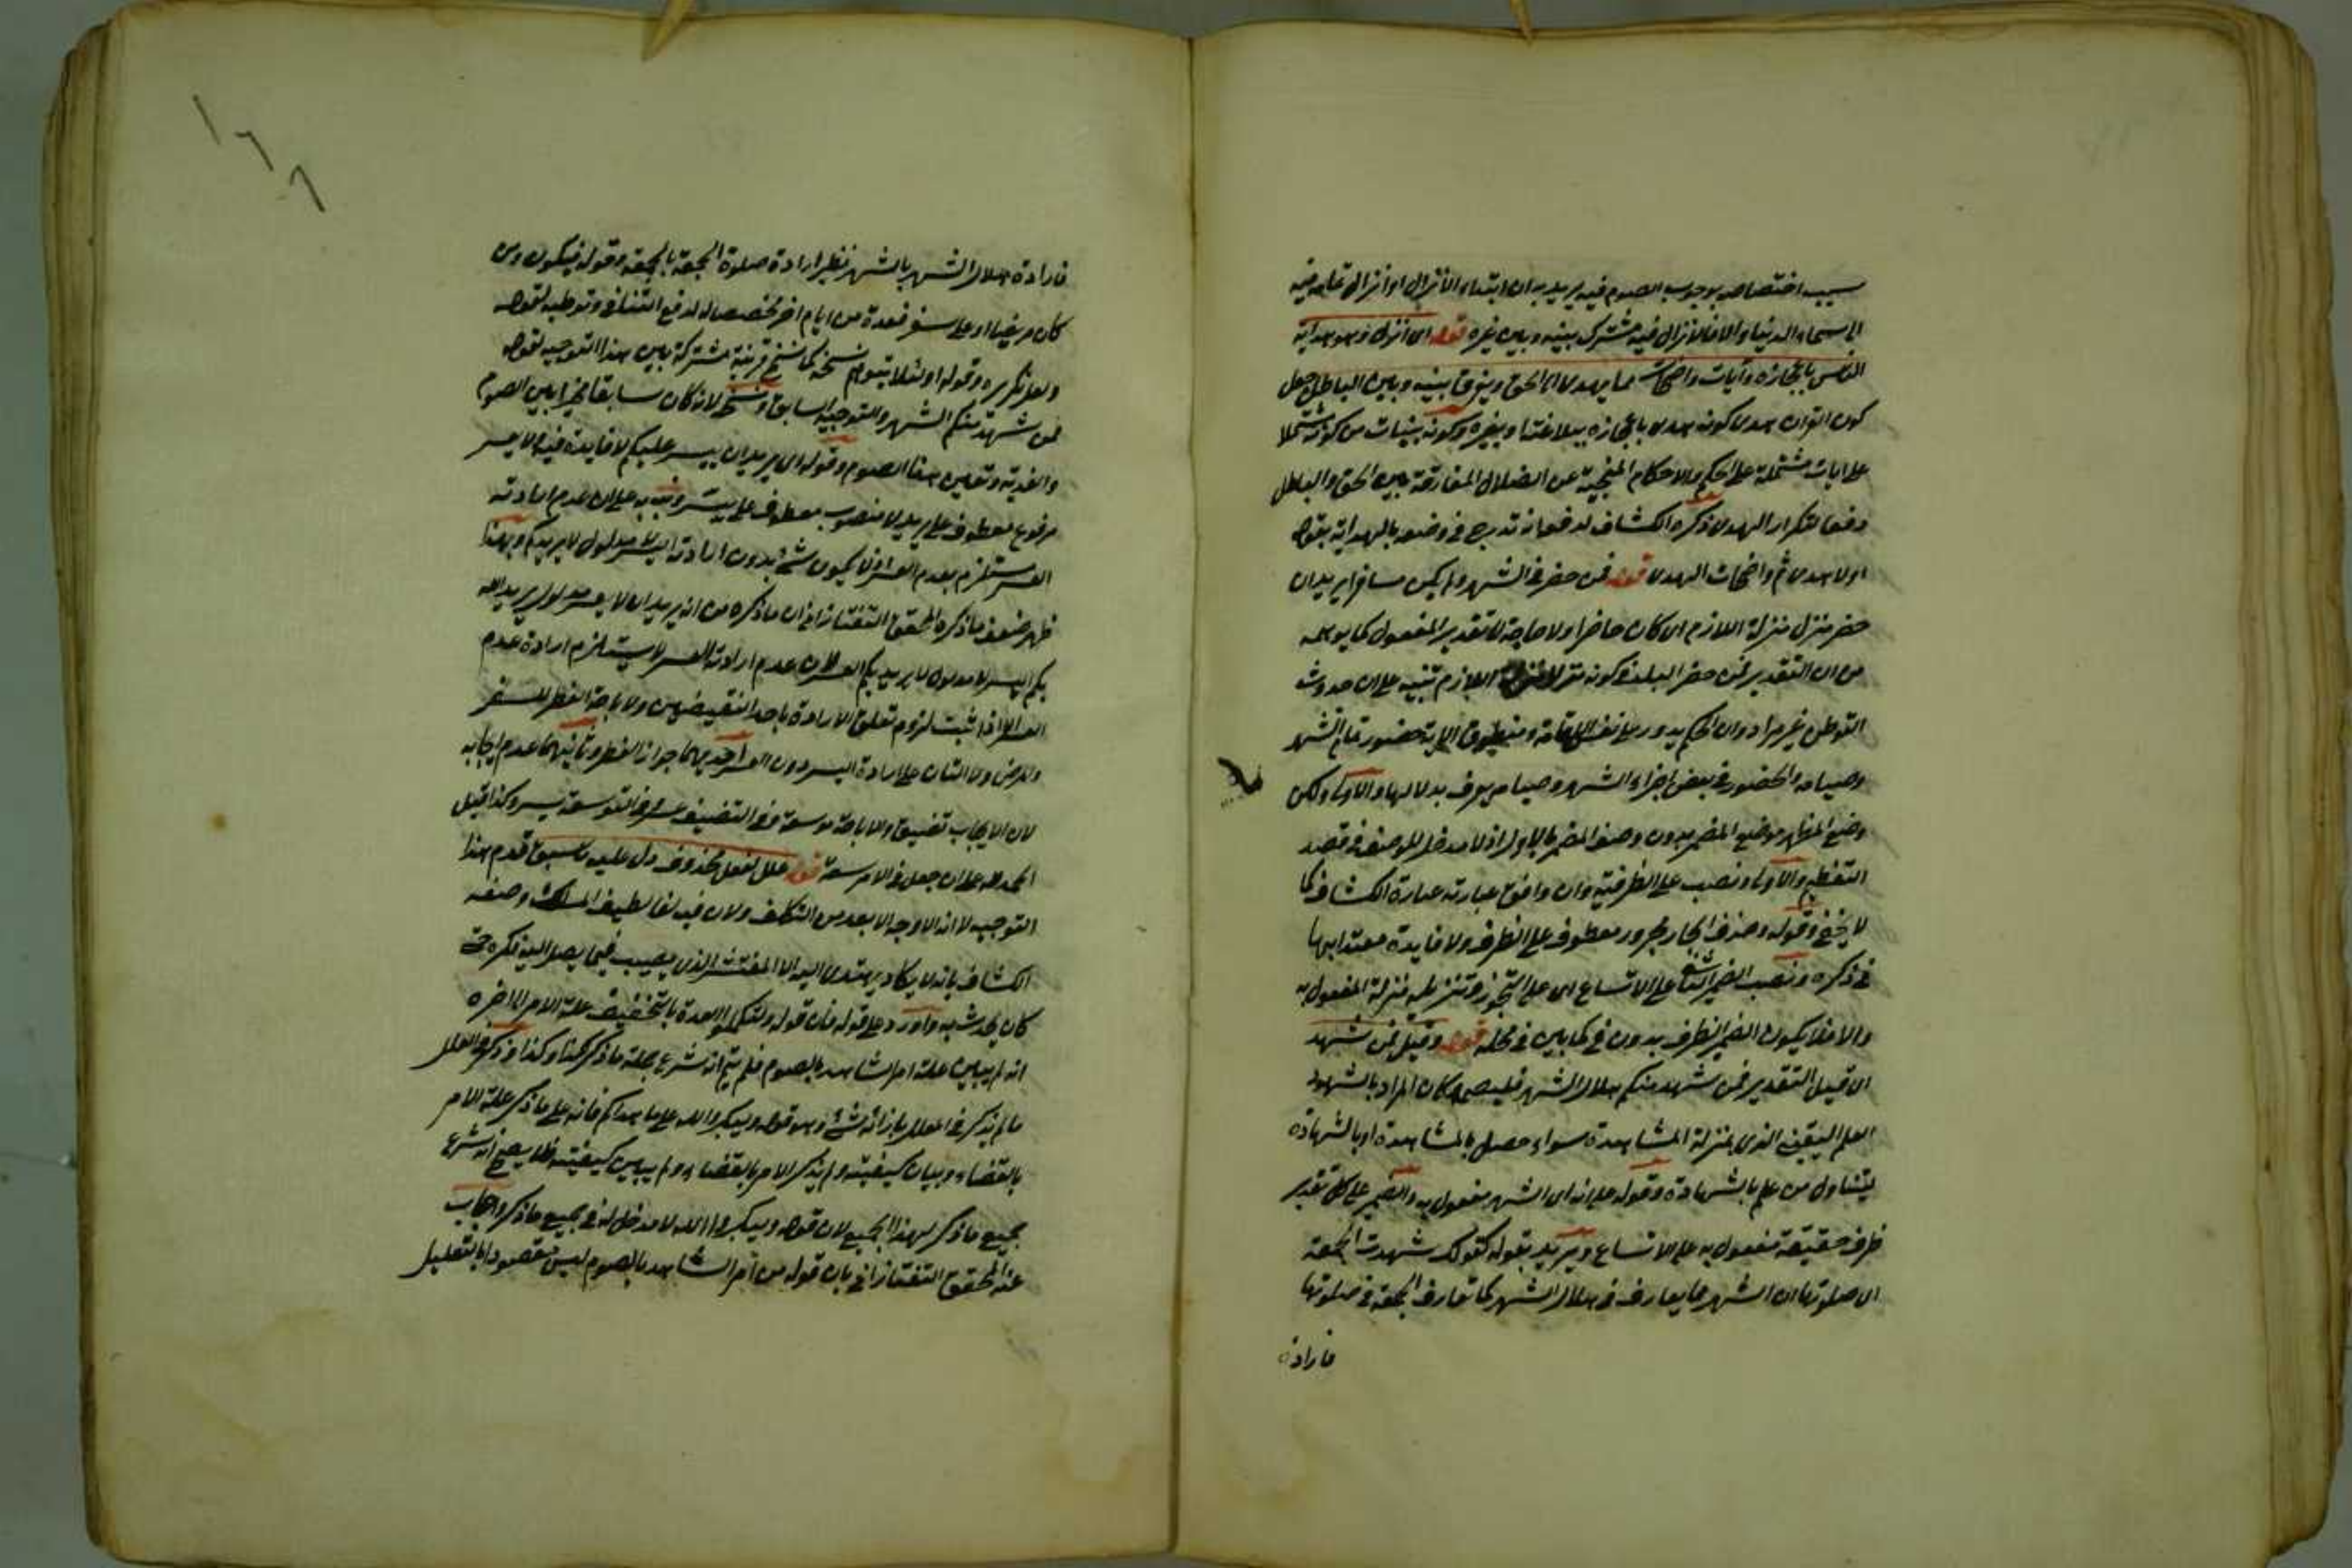 سبب اختصاصه بوجوب الصوم فيه يريد به ان ابتداء الانزال او انزال تمامه فيه
الى سماء الدنيا والا فالانزال فيه مشترك بينه وبين غيره قوله اى انزل وهو هداية
الناس باعجازه وآيات واضحات مما يهدى الى الحق ويفرق بينه وبين الباطل جعل
كون القران هدى كونه هدى باعجازه ببلاغته وبغيره وكونه بينات من كونه مشتملا
على ايات مشتملة على الحكم والاحكام المنجية عن الضلال المفارقة بين الحق والباطل
دفعا لتكرار الهدى وذكره الكشاف لدفعا نه تدرج فى وضعه بالهداية بقوله
اولا هدى ثم واضحات الهدى قوله فمن حضر فى الشهر ولم يكن مسافرا يريد ان
حضر منزل منزلة اللازم اى كان حاضرا ولا حاجة الى تقدير المفعول كما يوهمه
من ان التقدير فمن حضر البلد فى كونه منزلا منزلة اللازم تنبيه على ان حدوث
التوطن غير مراد وان الحكم يدور على نفس الاقامة ومنطوق الاية حضور تمام الشهر
وصيامه والحضور فى بعض اجزاء الشهر وصيامه يعرف بدلالتها والاولى ولكن
وضع المظهر موضع المضمر بدون وصف المضمر بالاول اذ لا مدخل للوصف فى قصد
التعظيم والاولى ونصب على الظرفية وان وافق عبارته عبارة الكشاف كما
لا يخفى وقوله وحذف الجار مجرور معطوف على الظرف ولا فايدة معتدا بها
فى ذكره ونصب الضمير الثانى على الاتساع اى على التجوز وتنزيله منزلة المفعول به
والا فلا يكون الضمير الظرف بدون فى كما بين فى محله قوله وقيل فمن شهد
اى قيل التقدير فمن شهد منكم هلال الشهر فليصمه وكان المراد بالشهود
العلم اليقينى الذى بمنزلة المشاهدة سواء حصل بالمشاهدة او بالشهادة
ليتناول من علم بالشهادة وقوله على انه اى الشهر مفعول به والضمير على كل تقدير
ظرف حقيقة مفعول به على الاتساع ويريد بقوله كقولك شهدت الجمعة
اى صلوتها ان الشهر مما يعارف فى هلال الشهر كما تعارف الجمعة فى صلوتها
فارادة
فارادة هلال الشهر بالشهر نظير ارادة صلوة الجمعة بالجمعة وقوله فيكون ومن
كان مريضا او على سفر فعدة من ايام اخر مخصصا له لدفع التنافى وتوطية لقوله
ولعل تكريره وقوله او لئلا يتوهم نسخه كما نسخ قرينه مشتركة بين هذا التوجيه لقوله
فمن شهد منكم الشهر والتوجيه السابق ونسخ لانه كان سابقا مخيرا بين الصوم
والفدية وتعين هنا الصوم وقوله اى يريد ان ييسر عليكم لا فايدة فيه ولا يعسر
مرفوع معطوف على يريد لا منصوب معطوف على ييسر ونبه به على ان عدم ارادته
العسر مستلزم بعدم العسر اذ لا يكون شئ بدون ارادته اليسر مدلول لا يريد بكم وبهذا
ظهر ضعف ما ذكره المحقق التفتازانى ان ما ذكره من انه يريد ان لا يعسر مدلول يريد الله
بكم اليسر لا مدلول لا يريد بكم العسر لان عدم ارادته العسر لا يستلزم ارادة عدم
العسر الا اذا ثبت لزوم تعلق الارادة باحد النقيضين ولاباحة الفطر للسفر
والمرض دلالتان على ارادة اليسر دون العسر احديهما جواز الفطر وثانيهما عدم ايجابه
لان الايجاب تضييق والاباحة توسعة وفى التضييق عسر وفى التوسعة يسر وكذا قيل
الحمد لله على ان جعل فى الامر سعة قوله علل لفعل محذوف دل عليه ما سبق قدم هذا
التوجيه لانه الاوجه الابعد من التكلف ولان فيه لفا لطيف المسلك وصفه
الكشاف بانه لا يكاد يهتدى اليه الا المفتش الذى يصيب فيما يصل اليه فكره حتى
كان يحدث به واورد على قوله فان قوله ولتكملوا العدة بالتخفيف علة الامر الى اخره
انه لم يبين علة امر الشاهد بالصوم فلم يتم انه شرع جملة ما ذكر لكذا وكذا وذكر فى العلل
ما لم يذكر فى المعلل بازائه شئ وهو قوله وليكبروا الله على ما هداكم فانه على ما ذكر علة الامر
بالقضاء وبيان كيفيته ولم يذكر الامر بالقضاء ولم يبين كيفيته فلا يصح انه شرع
جميع ما ذكر لهذا الجميع لان قوله وليكبروا الله لا مدخل له فى جميع ما ذكر واجاب
عنه المحقق التفتازانى بان قوله من امر الشاهد بالصوم ليس مقصودا بالتعليل